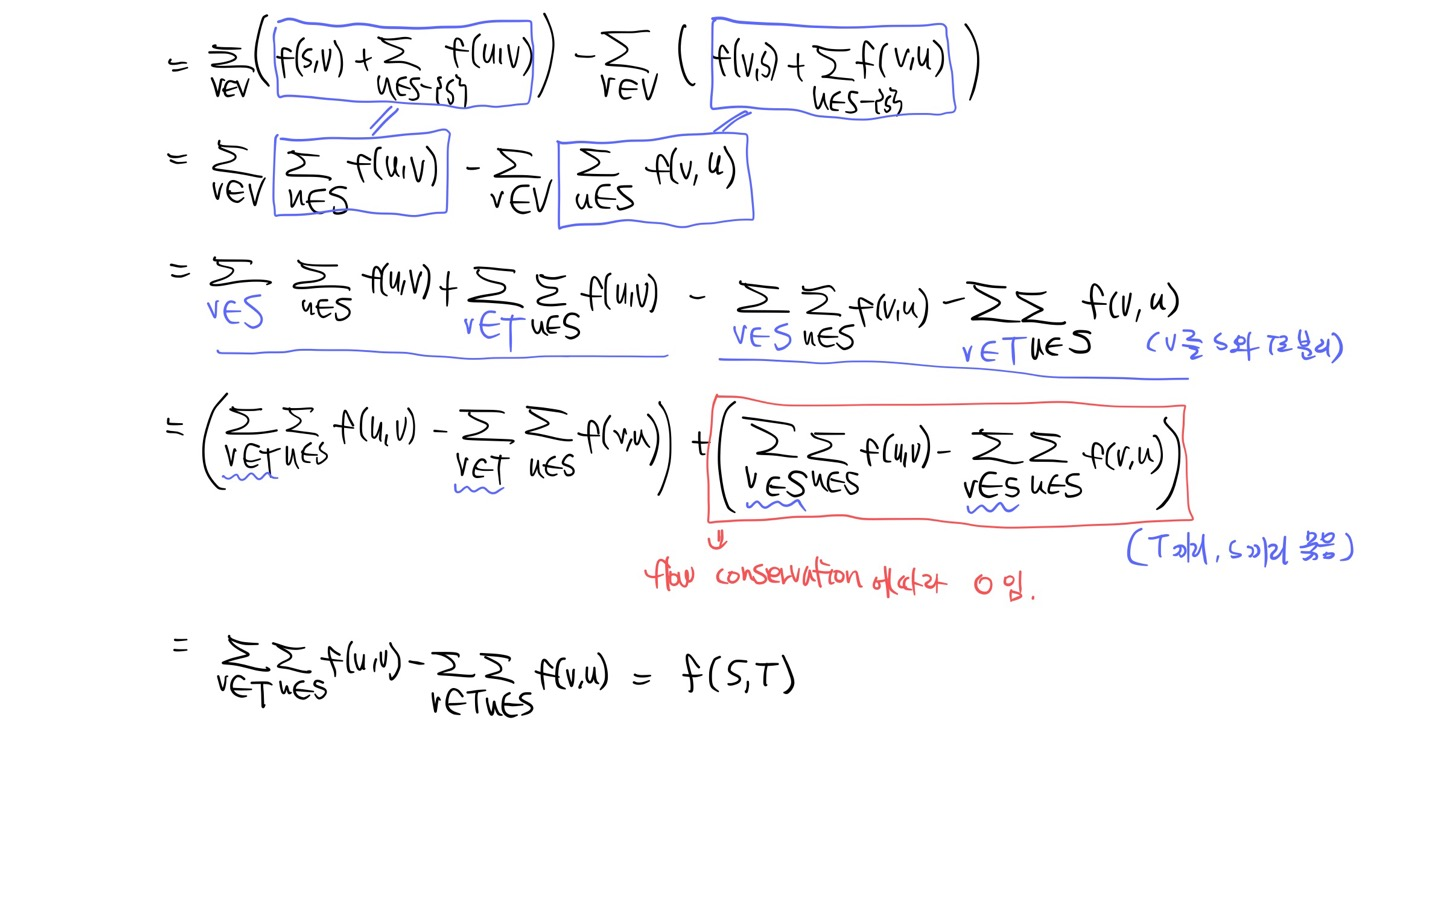 = ∑_{v∈V} ( f(s,v) + ∑_{u∈S-{s}} f(u,v) ) - ∑_{v∈V} ( f(v,s) + ∑_{u∈S-{s}} f(v,u) )
= ∑_{v∈V} ∑_{u∈S} f(u,v) - ∑_{v∈V} ∑_{u∈S} f(v,u)
= ∑_{v∈S} ∑_{u∈S} f(u,v) + ∑_{v∈T} ∑_{u∈S} f(u,v) - ∑_{v∈S} ∑_{u∈S} f(v,u) - ∑_{v∈T} ∑_{u∈S} f(v,u)
(V를 S와 T로 분리)
= ( ∑_{v∈T} ∑_{u∈S} f(u,v) - ∑_{v∈T} ∑_{u∈S} f(v,u) ) + ( ∑_{v∈S} ∑_{u∈S} f(u,v) - ∑_{v∈S} ∑_{u∈S} f(v,u) )
(T끼리, S끼리 묶음)
flow conservation에 따라 0임.
= ∑_{v∈T} ∑_{u∈S} f(u,v) - ∑_{v∈T} ∑_{u∈S} f(v,u) = f(S,T)